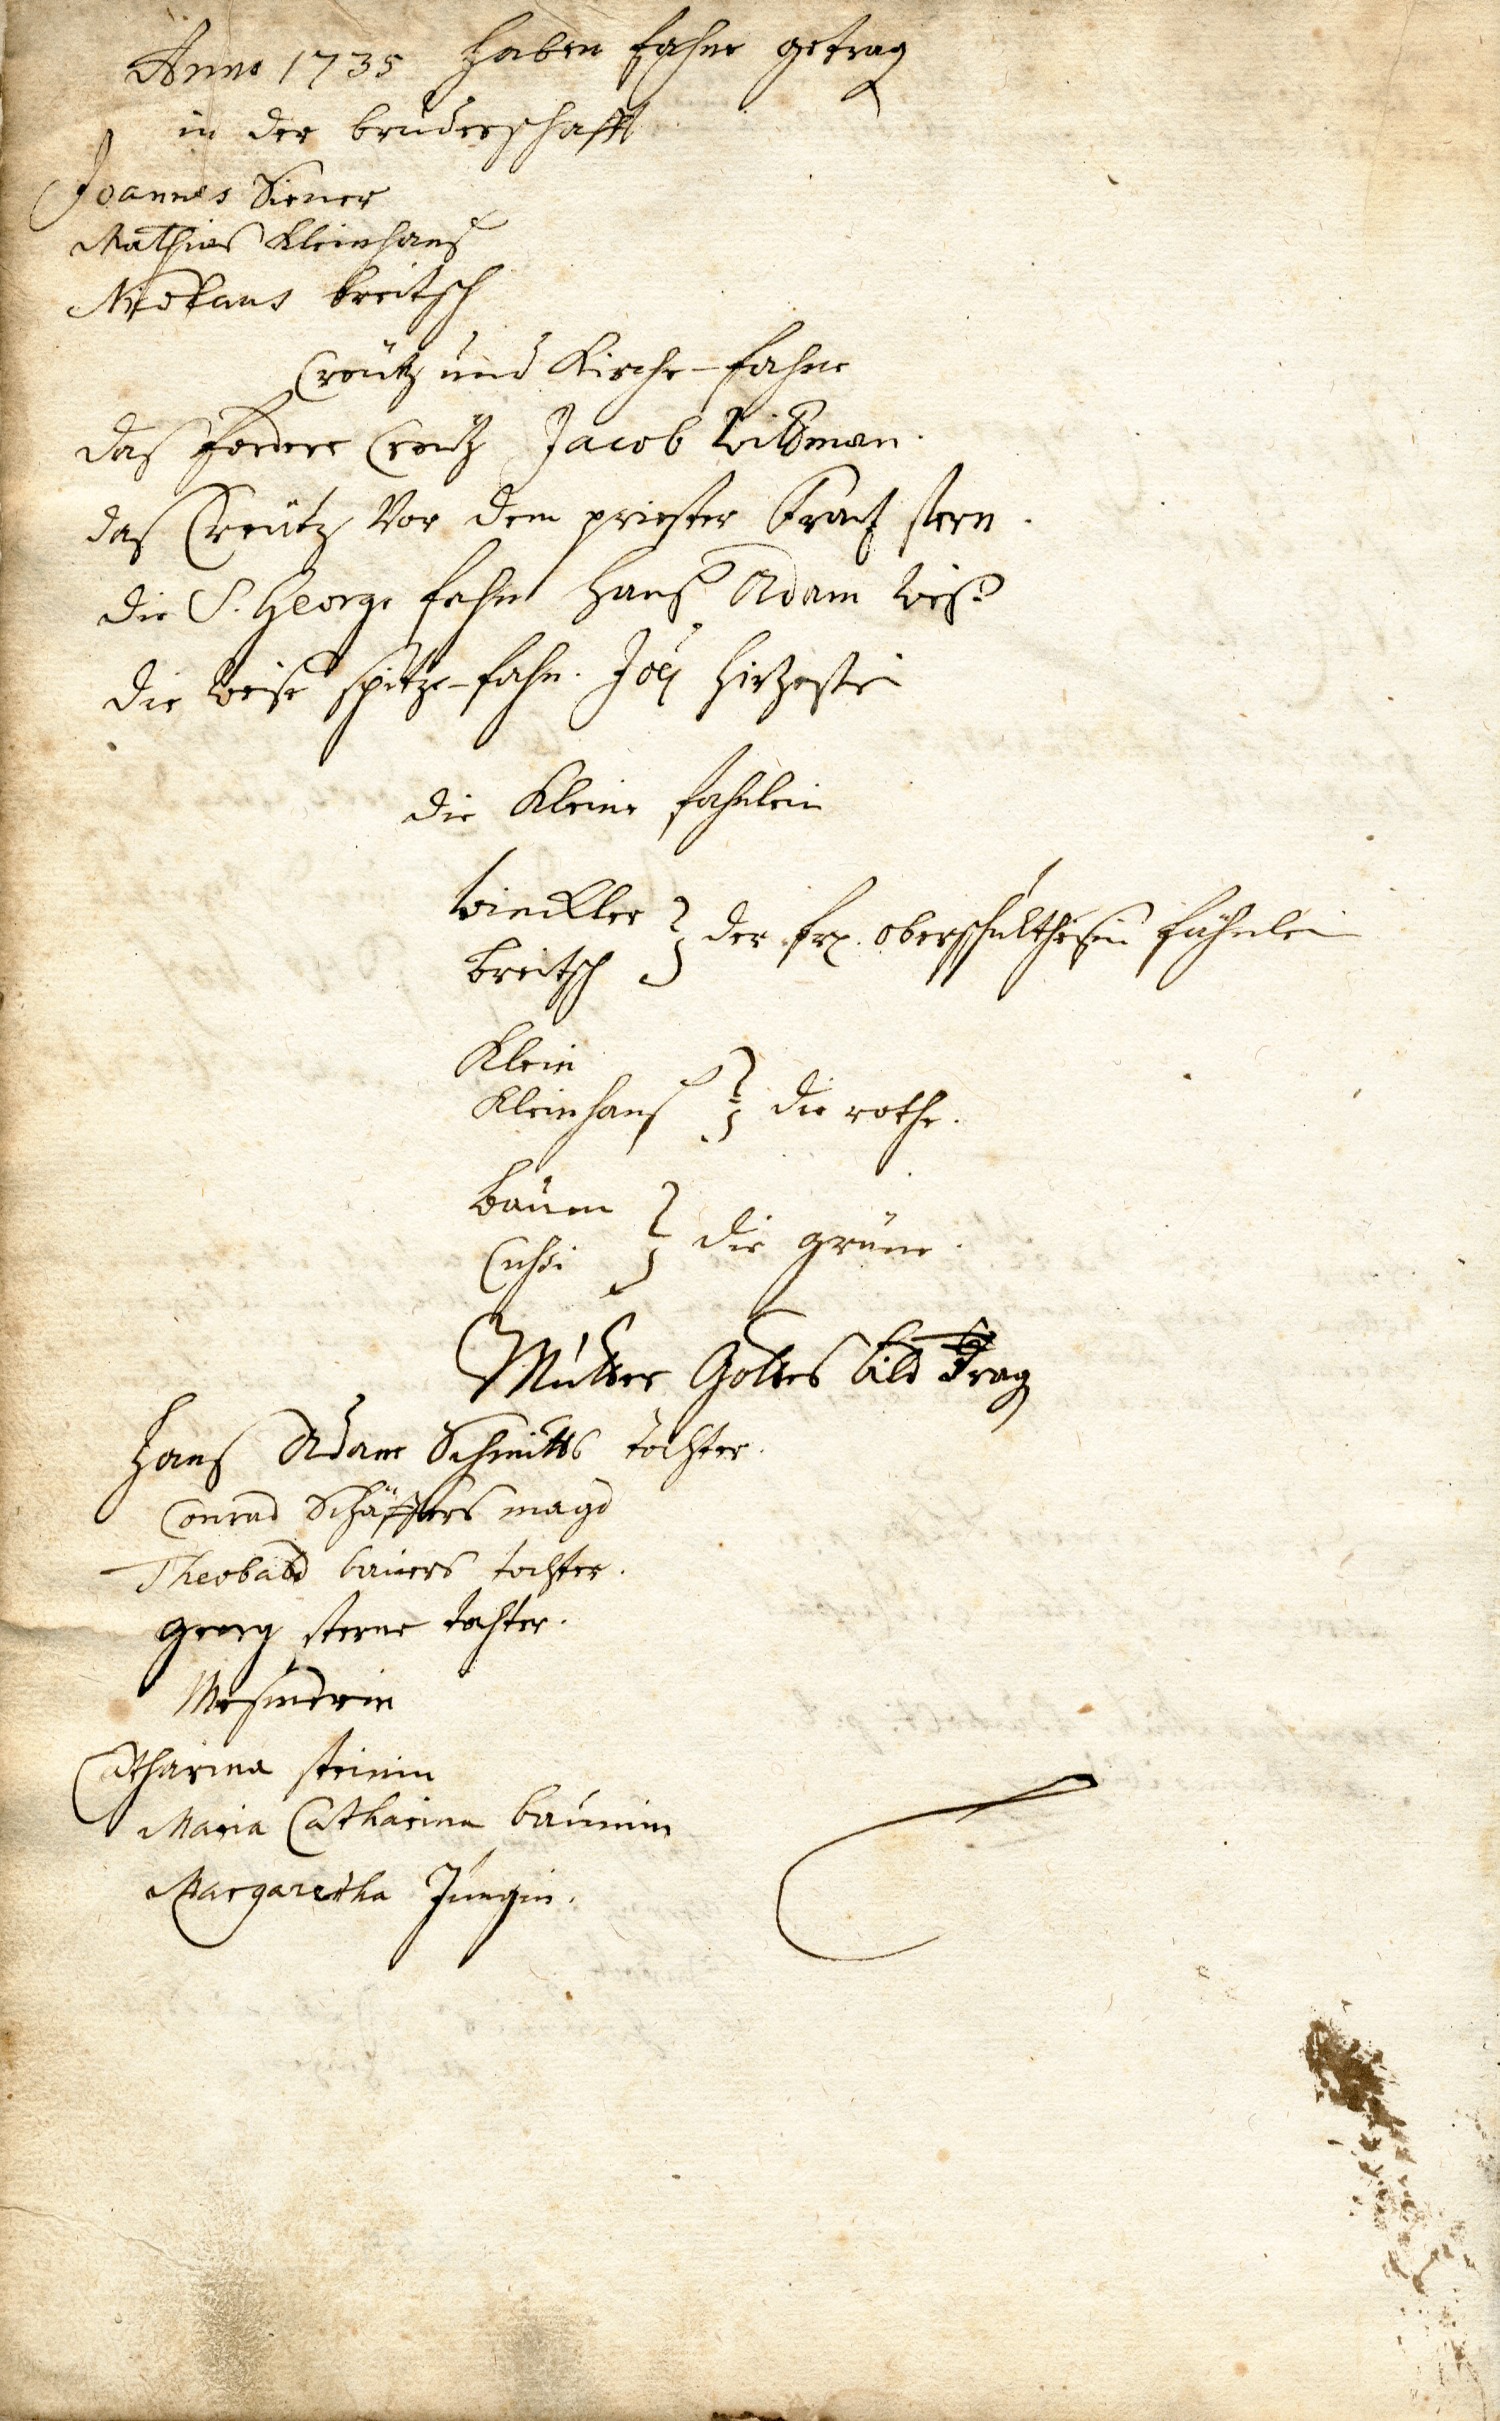 Anno 1735 haben fahne getrag
in der bruderschafft
Joannes Siener
Mathias Kleinhans
Nicolaus breitsch
Creütz und Kirche-fahne
das fordere Creütz Jacob Wildman.
das Creütz Vor dem priester Frantz stern.
die S. George fahn hans Adam Weiß
die weise spitze-fahn. Joes
die Kleine fahnlein
Winckler
breitsch } der fr. oberschultheisin fähnlei
Klein
Kleinhans } die rothe.
baum
} die grüne.
Mutter Gottes bild trag
Hans Adam Schmitts tochter.
Conrad Schäffers magd
Theobald bauers tochter.
Georg sterne tochter.
Catharina steinin
Maria Catharina baumin
Margaretha Jungin.